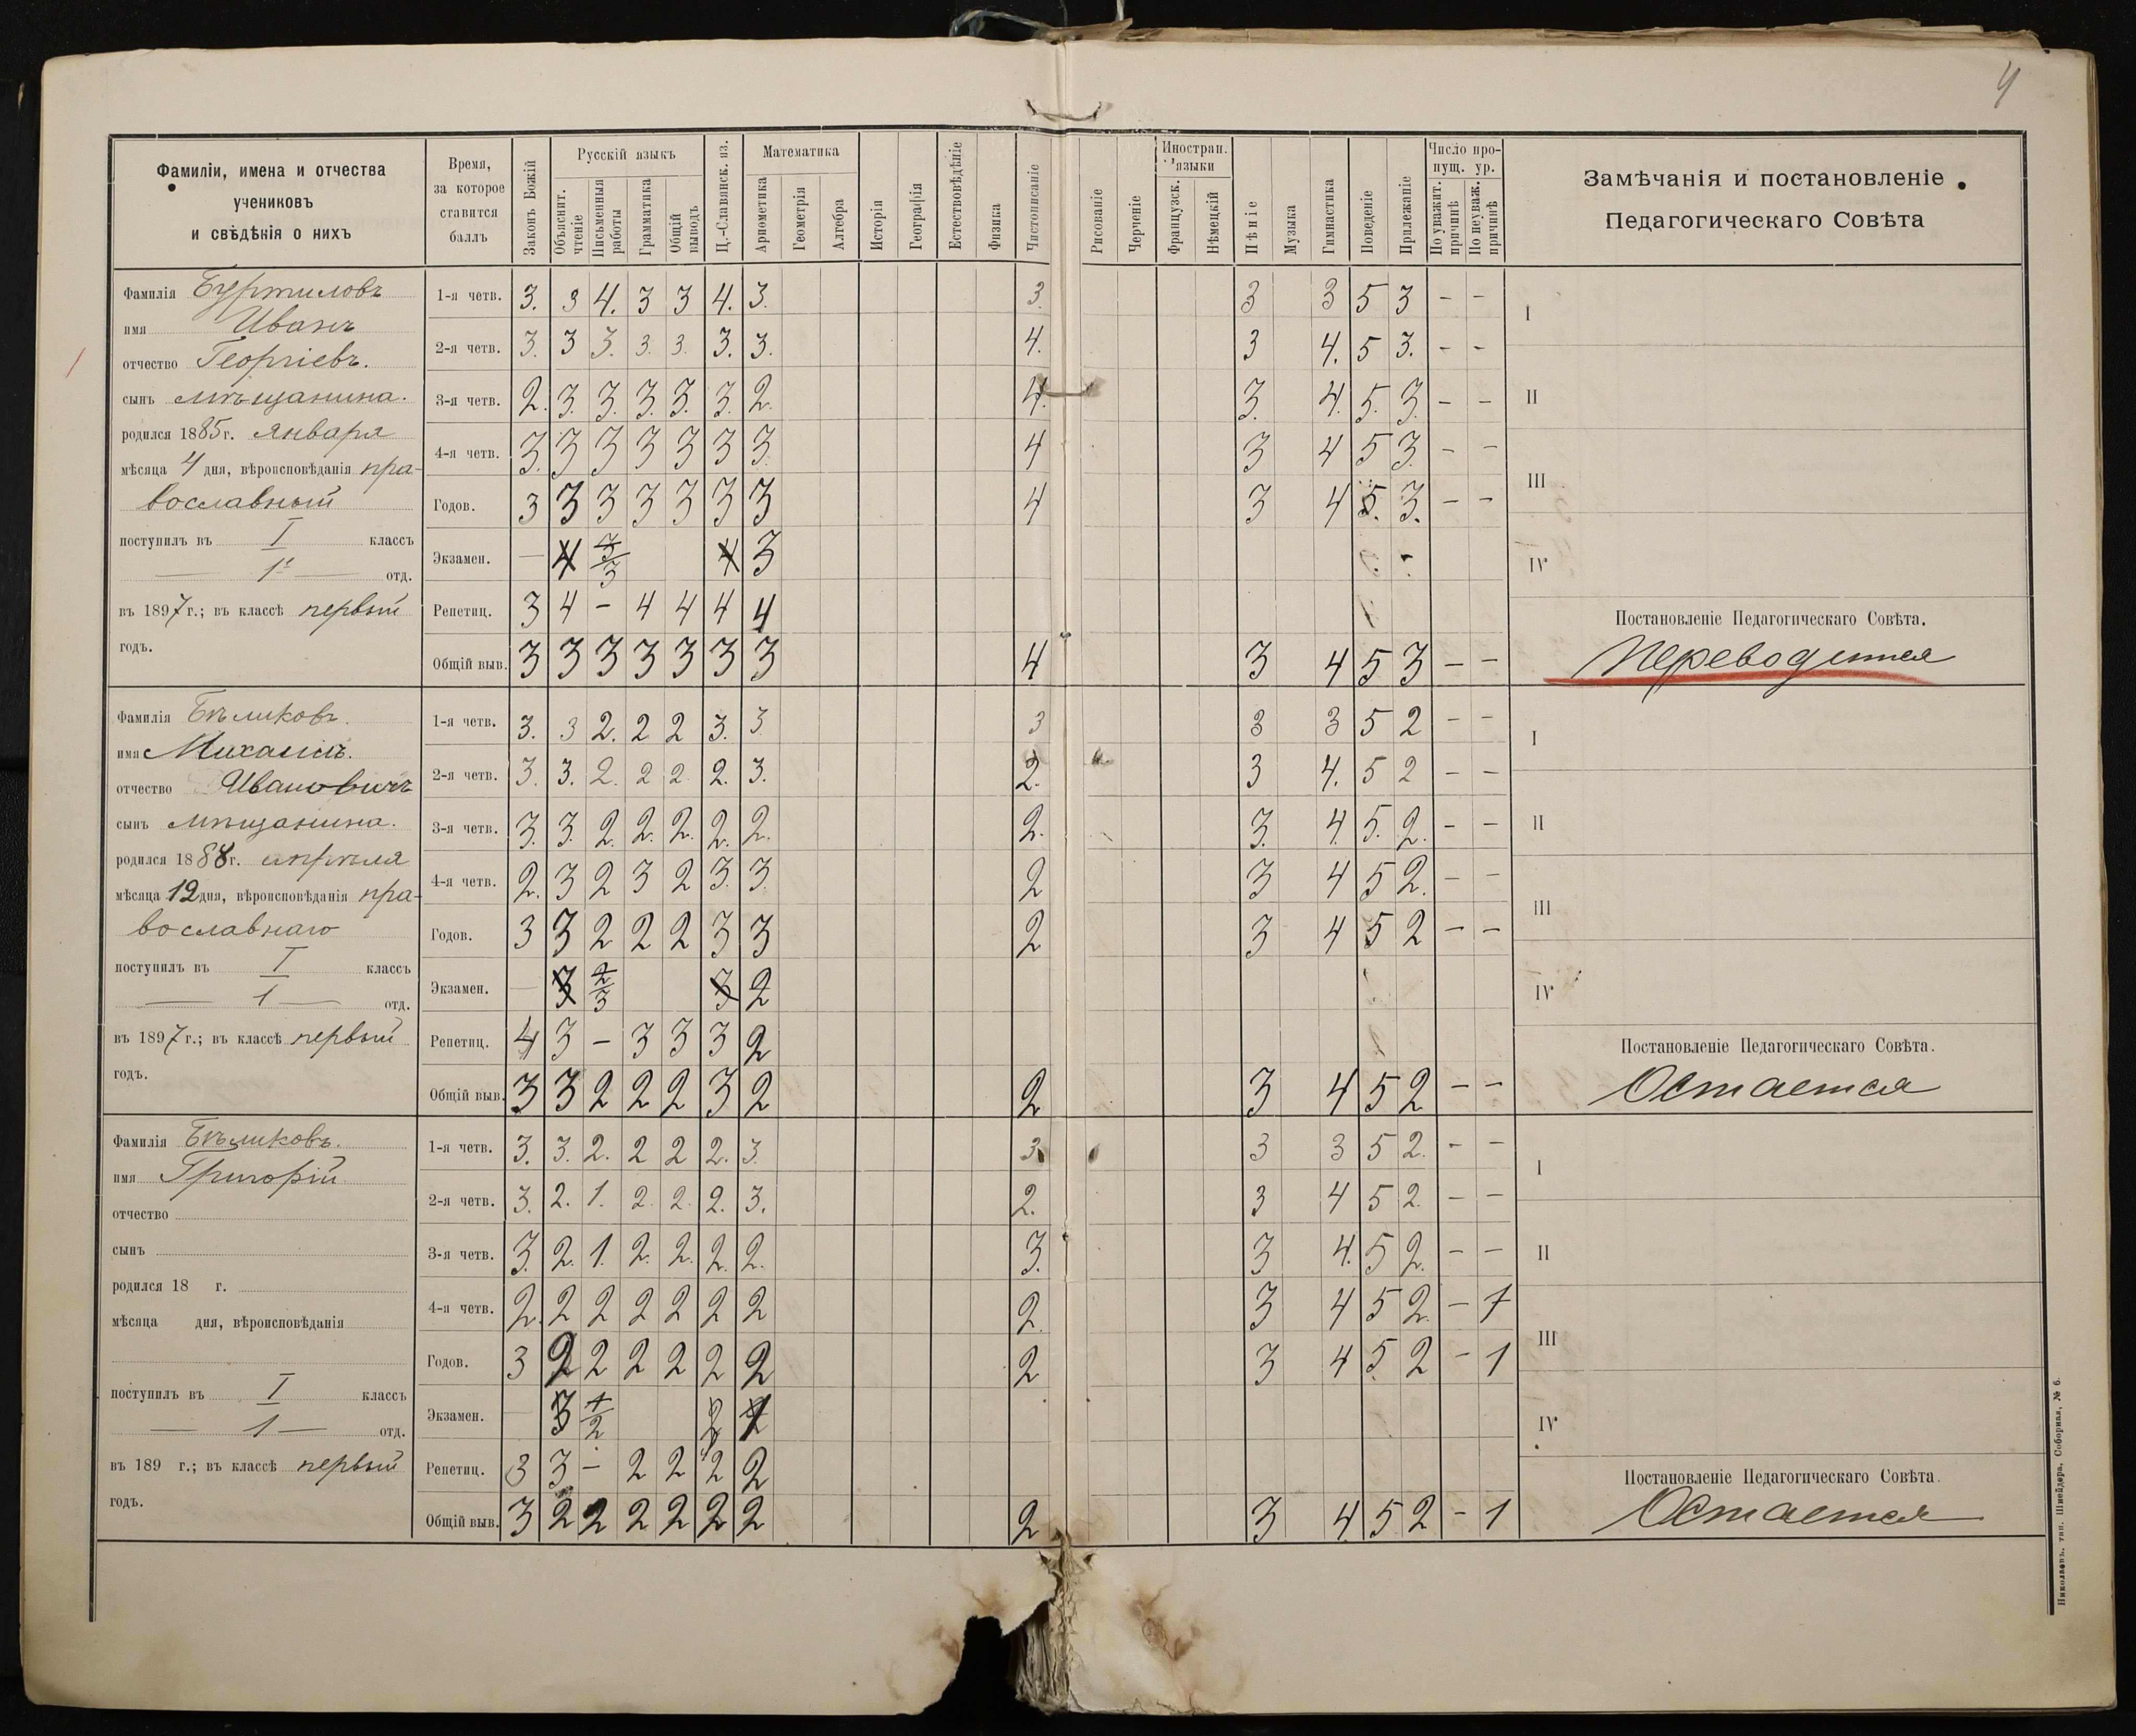 4
Фамиліи, имена и отчества
учениковъ
и свѣдѣнія о нихъ
Время,
за которое
ставится
баллъ
Законъ Божій
Русскій языкъ
Объяснит. чтеніе
Письменныя работы
Грамматика
Общій выводъ
Ц.-Славянск. яз.
Математика
Ариөметика
Геометрія
Алгебра
Исторія
Географія
Естествовѣдѣніе
Физика
Чистописаніе
Рисованіе
Черченіе
Иностран. языки
Французск.
Нѣмецкій
Пѣніе
Музыка
Гимнастика
Поведеніе
Прилежаніе
Число про-
пущ. ур.
По уважит. причинѣ
По неуваж. причинѣ
Замѣчанія и постановленіе
Педагогическаго Совѣта
Фамилія Буртиловъ
имя Иванъ
отчество Георгіевъ.
сынъ мѣщанина.
родился 1885 г. января
мѣсяца 4 дня, вѣроисповѣданія пра-
вославный
поступилъ въ I классъ
— 1 — отд.
въ 1897 г.; въ классѣ первый
годъ.
1-я четв. 3. 3 4. 3 3 4. 3. 3. 3 3 5 3 – –
2-я четв. 3. 3 3. 3. 3. 3. 3. 4. 3 4. 5 3. – –
3-я четв. 2. 3. 3. 3. 3. 3. 2. 4. 3. 4. 5. 3. – –
4-я четв. 3. 3 3 3 3 3 3. 4 3 4 5 3. – –
Годов. 3 3 3 3 3 3 3 4 3 4 5. 3. – –
Экзамен. — 4 3/3 4 3
Репетиц. 3 4 – 4 4 4 4
Общій выв. 3 3 3 3 3 3 3 4 3 4 5 3 – –
I
II
III
IV
Постановленіе Педагогическаго Совѣта.
Переводится
Фамилія Бѣликовъ.
имя Михаилъ.
отчество Ивановичъ
сынъ мѣщанина.
родился 1888 г. апрѣля
мѣсяца 12 дня, вѣроисповѣданія пра-
вославнаго
поступилъ въ I классъ
— 1 — отд.
въ 1897 г.; въ классѣ первый
годъ.
1-я четв. 3. 3 2. 2 2 3. 3. 3 3 3 5 2 – –
2-я четв. 3. 3. 2. 2 2. 2. 3. 2. 3 4. 5 2 – –
3-я четв. 3. 3. 2. 2. 2. 2. 2. 2. 3. 4. 5. 2. – –
4-я четв. 2. 3 2 3 2 3. 3. 2 3 4 5 2. – –
Годов. 3 3 2 2 2 3 3 2 3 4 5 2 – –
Экзамен. — 3 2/3 3 2
Репетиц. 4 3 – 3 3 3 2
Общій выв. 3 3 2 2 2 3 2 2 3 4 5 2 – –
I
II
III
IV
Постановленіе Педагогическаго Совѣта.
Остается
Фамилія Бѣликовъ.
имя Григорій
отчество
сынъ
родился 18 г.
мѣсяца дня, вѣроисповѣданія
поступилъ въ I классъ
— 1 — отд.
въ 189 г.; въ классѣ первый
годъ.
1-я четв. 3. 3. 2. 2 2 2. 3. 3. 3 3 5 2. – –
2-я четв. 3. 2. 1. 2. 2. 2. 3. 2. 3 4 5 2. – –
3-я четв. 3. 2. 1. 2. 2. 2. 2. 3. 3 4. 5 2. – –
4-я четв. 2. 2 2 2 2 2 2 2. 3 4 5 2. – 1
Годов. 3 2 2 2 2 2 2 2 3 4 5 2 – 1
Экзамен. — 3 1/2 2
Репетиц. 3 3 – 2 2 2 2
Общій выв. 3 2 2 2 2 2 2 2 3 4 5 2 – 1
I
II
III
IV
Постановленіе Педагогическаго Совѣта.
Остается
Николаевъ. тип. Шнейдера, Соборная, № 6.